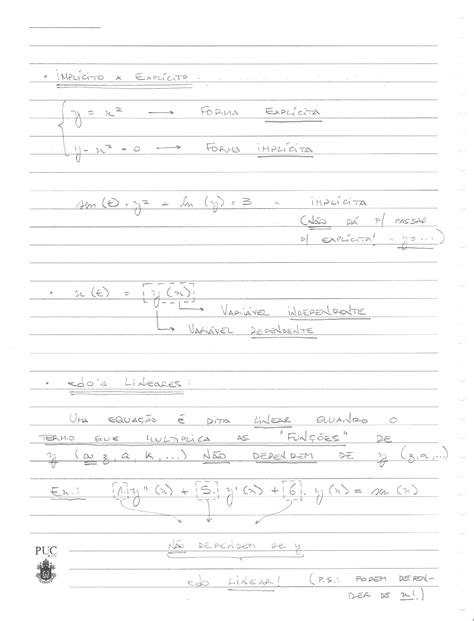 • IMPLÍCITO x EXPLÍCITO:
{ y = x² → FORMA EXPLÍCITA
y - x² = 0 → FORMA IMPLÍCITA
sen(t) · y² + ln(y) = 3 - IMPLÍCITA
(NÃO DÁ P/ PASSAR
P/ EXPLÍCITA! - y = ...)
• x(t) = y(x)
→ VARIÁVEL INDEPENDENTE
→ VARIÁVEL DEPENDENTE
• EDO'S LINEARES:
UMA EQUAÇÃO É DITA LINEAR QUANDO O
TERMO QUE MULTIPLICA AS "FUNÇÕES" DE
y (ou z, a, k, ...) NÃO DEPENDEM DE y (z, a ...)
Ex.: 1 y''(x) + 5 · y'(x) + 6 · y(x) = sen(x)
NÃO DEPENDEM DE y
PUC
EDO LINEAR! (P.S.: PODEM DEPEN-
DER DE x!)